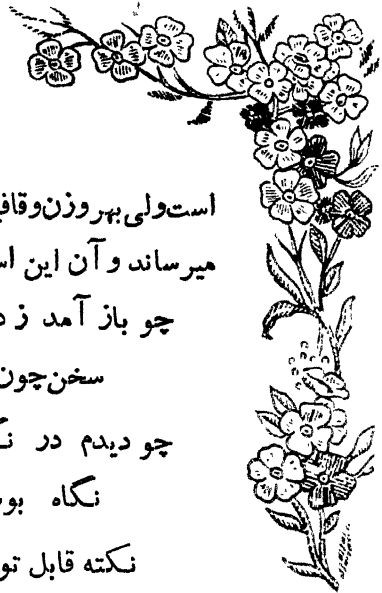 است‌ولی‌بهر‌وزن‌وقافی
میرساند و آن این اس
چو باز آمد ز د
سخن‌چون
چو دیدم در نگ
نگاه بو
نکته قابل تو